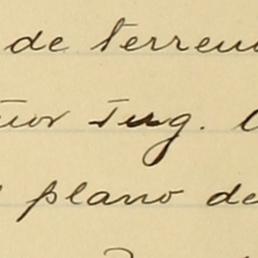 de terreno
Ing.
plano de